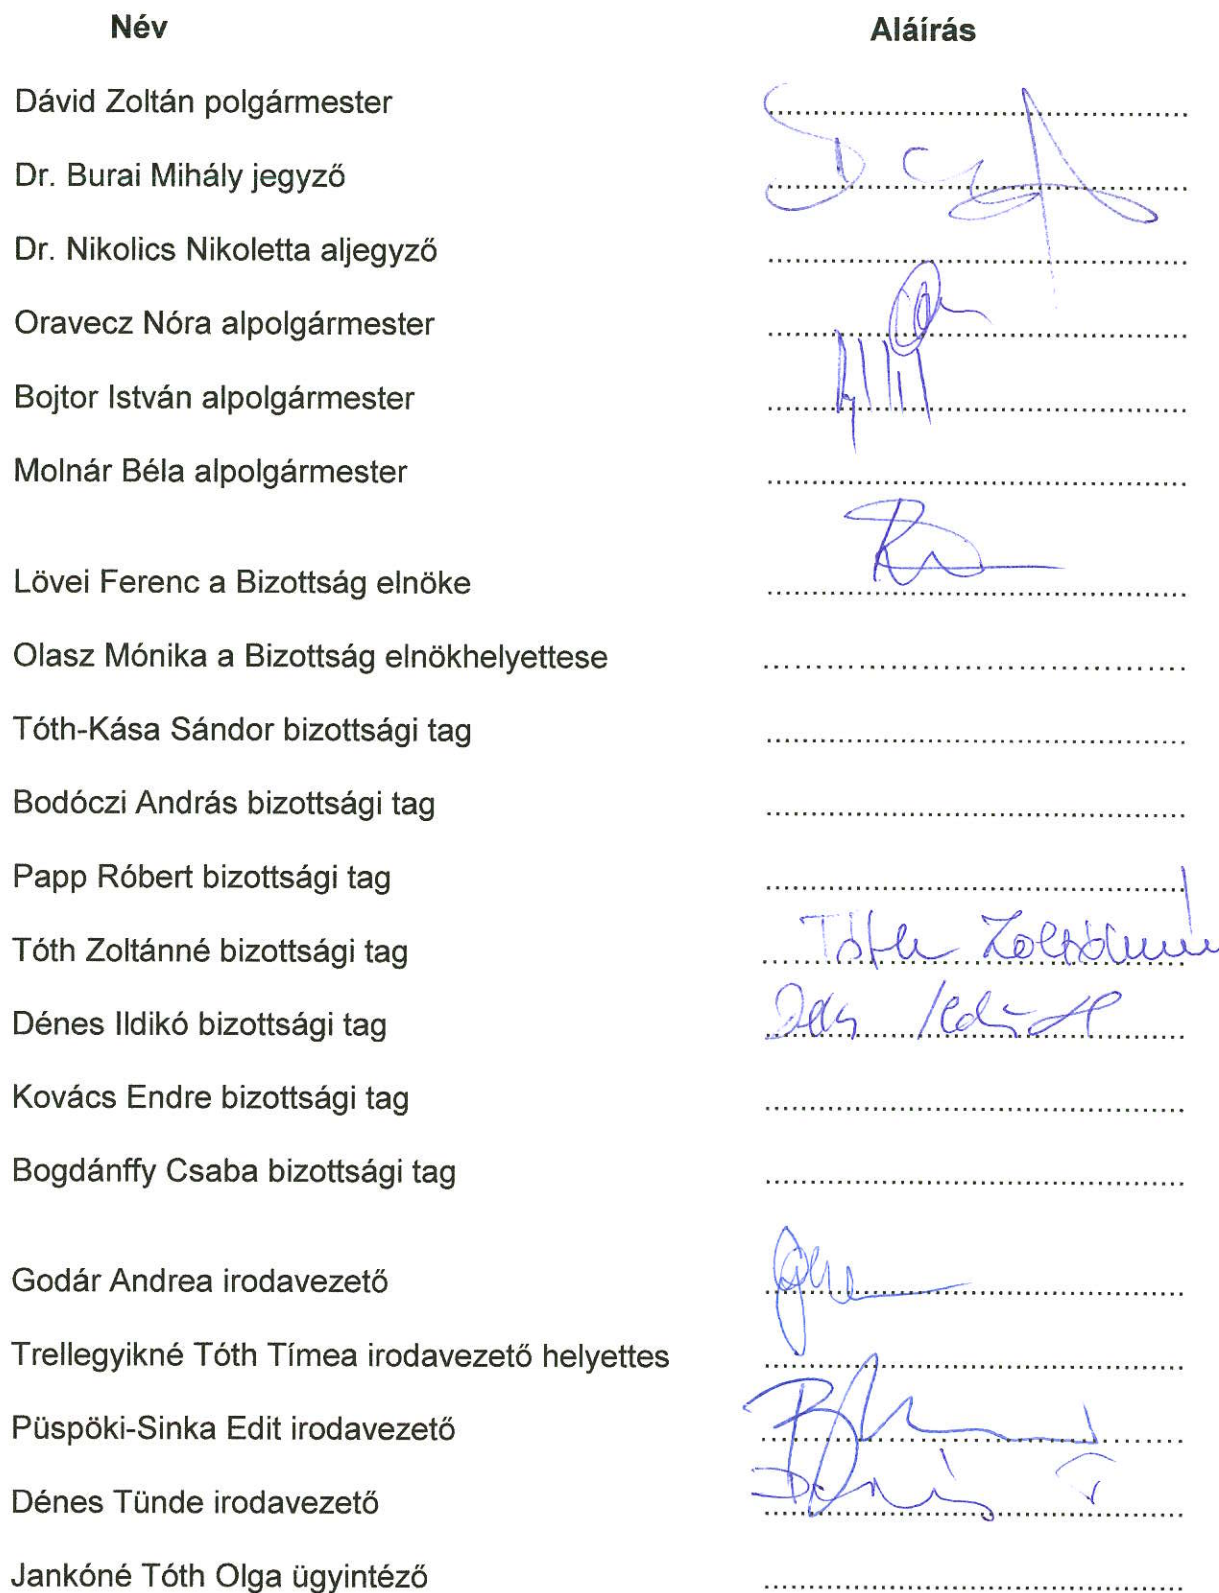 Név Aláírás
Dávid Zoltán polgármester
Dr. Burai Mihály jegyző
Dr. Nikolics Nikoletta aljegyző
Oravecz Nóra alpolgármester
Bojtor István alpolgármester
Molnár Béla alpolgármester
Lövei Ferenc a Bizottság elnöke
Olasz Mónika a Bizottság elnökhelyettese
Tóth-Kása Sándor bizottsági tag
Bodóczi András bizottsági tag
Papp Róbert bizottsági tag
Tóth Zoltánné bizottsági tag Tóth Zoltánné
Dénes Ildikó bizottsági tag
Kovács Endre bizottsági tag
Bogdánffy Csaba bizottsági tag
Godár Andrea irodavezető
Trellegyikné Tóth Tímea irodavezető helyettes
Püspöki-Sinka Edit irodavezető
Dénes Tünde irodavezető
Jankóné Tóth Olga ügyintéző